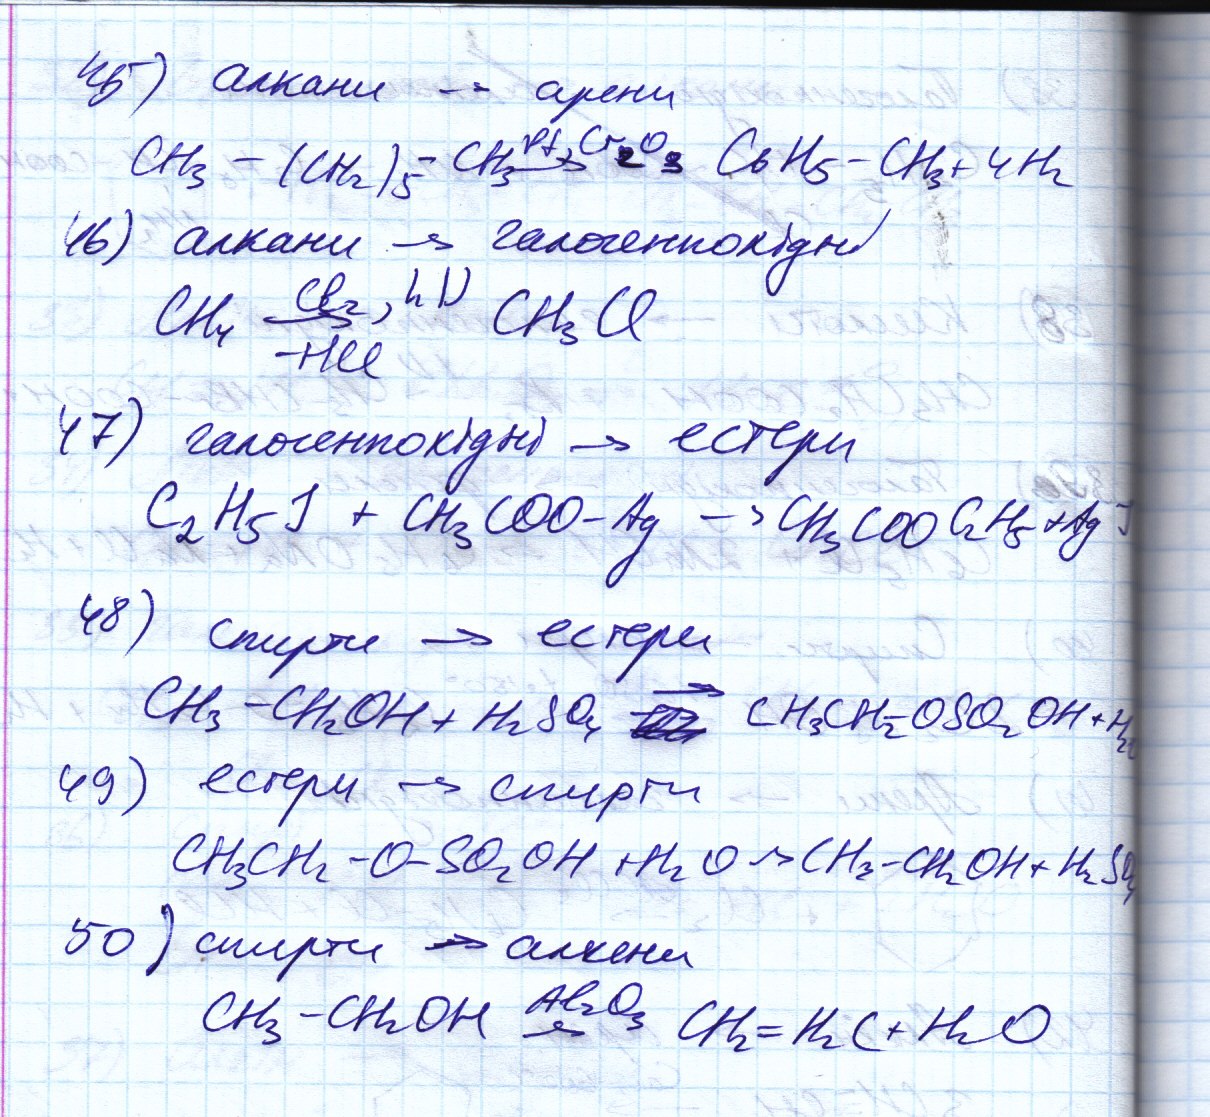 45) алкани → арени
CH3 - (CH2)5 - CH3 Pt, Cr2O3 → C6H5 - CH3 + 4H2
46) алкани → галогенпохідні
CH4 Cl2, hν → -HCl CH3Cl
47) галогенпохідні → естери
C2H5J + CH3COO-Ag → CH3COOC2H5 + AgJ
48) спирти → естери
CH3 - CH2OH + H2SO4 → CH3CH2-OSO2OH + H2O
49) естери → спирти
CH3CH2 - O - SO2OH + H2O → CH3 - CH2OH + H2SO4
50) спирти → алкени
CH3 - CH2OH Al2O3 → CH2 = H2C + H2O